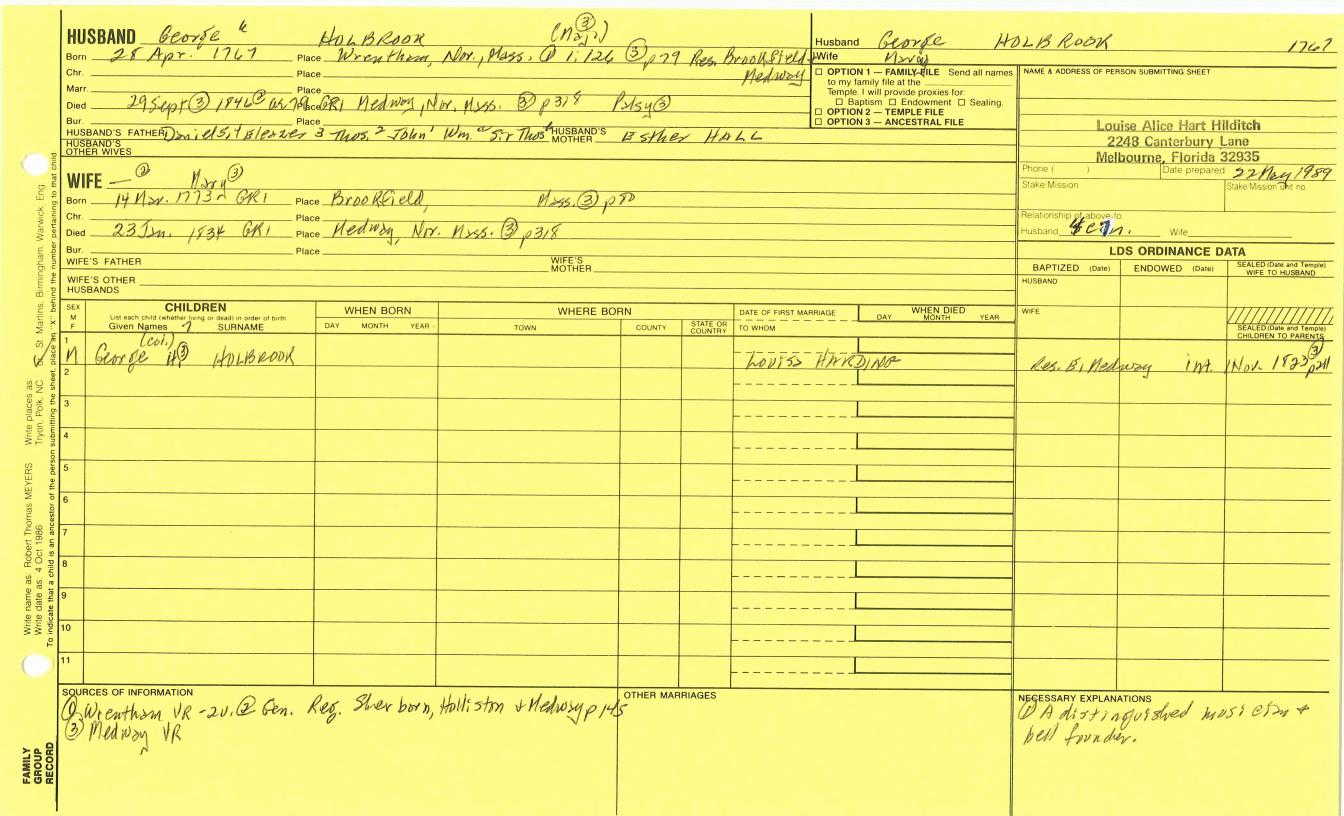 HUSBAND George 6 HOLBROOK (Maj. 3)
Born 28 Apr. 1767 Place Wrentham, Nor., Mass. ① 1:126 ③ p79 Res. Brookfield +
Chr. Place Medway
Marr. Place
Died 29 Sept ③ 1846 ② ae 79 Place GR1 Medway, Nor, Mass. ③ p318 Patsy ③
Bur. Place
HUSBAND'S FATHER Daniel 5, 4 Eleazer 3 Thos. 2 John 1 Wm. a Sir Thos b HUSBAND'S MOTHER Esther HALL
HUSBAND'S OTHER WIVES
Husband George HOLBROOK 1767
Wife Mary
☐ OPTION 1 — FAMILY FILE Send all names
to my family file at the
Temple. I will provide proxies for:
☐ Baptism ☐ Endowment ☐ Sealing.
☐ OPTION 2 — TEMPLE FILE
☐ OPTION 3 — ANCESTRAL FILE
NAME & ADDRESS OF PERSON SUBMITTING SHEET
Louise Alice Hart Hilditch
2248 Canterbury Lane
Melbourne, Florida 32935
Phone ( ) Date prepared 22 May 1989
Stake/Mission Stake/Mission unit no.
Relationship of above to:
Husband Wife
WIFE — ② Mary ③
Born 14 Mar. 1773 GR1 Place Brookfield, Mass. ③ p80
Chr. Place
Died 23 Jan. 1834 GR1 Place Medway, Nor. Mass. ③ p318
Bur. Place
WIFE'S FATHER WIFE'S MOTHER
WIFE'S OTHER HUSBANDS
LDS ORDINANCE DATA
BAPTIZED (Date) ENDOWED (Date) SEALED (Date and Temple) WIFE TO HUSBAND
HUSBAND
WIFE
SEALED (Date and Temple) CHILDREN TO PARENTS
SEX M F
CHILDREN
List each child (whether living or dead) in order of birth
Given Names 7 SURNAME
WHEN BORN DAY MONTH YEAR
WHERE BORN TOWN COUNTY STATE OR COUNTRY
DATE OF FIRST MARRIAGE TO WHOM
WHEN DIED DAY MONTH YEAR
1 (Col.)
M George H ③ HOLBROOK Louisa HARDING Res. E. Medway int. 1 Nov. 1823 ③ p211
2
3
4
5
6
7
8
9
10
11
SOURCES OF INFORMATION
① Wrentham VR -2v. ② Gen. Reg. Sherborn, Holliston & Medway p 145
③ Medway VR
OTHER MARRIAGES
NECESSARY EXPLANATIONS
① A distinguished musician &
bell founder.
Write name as: Robert Thomas MEYERS Write places as: Tryon, Polk, NC
Write date as: 4 Oct 1986 St. Martins, Birmingham, Warwick, Eng
To indicate that a child is an ancestor of the person submitting the sheet, place an "X" behind the number pertaining to that child
FAMILY
GROUP
RECORD